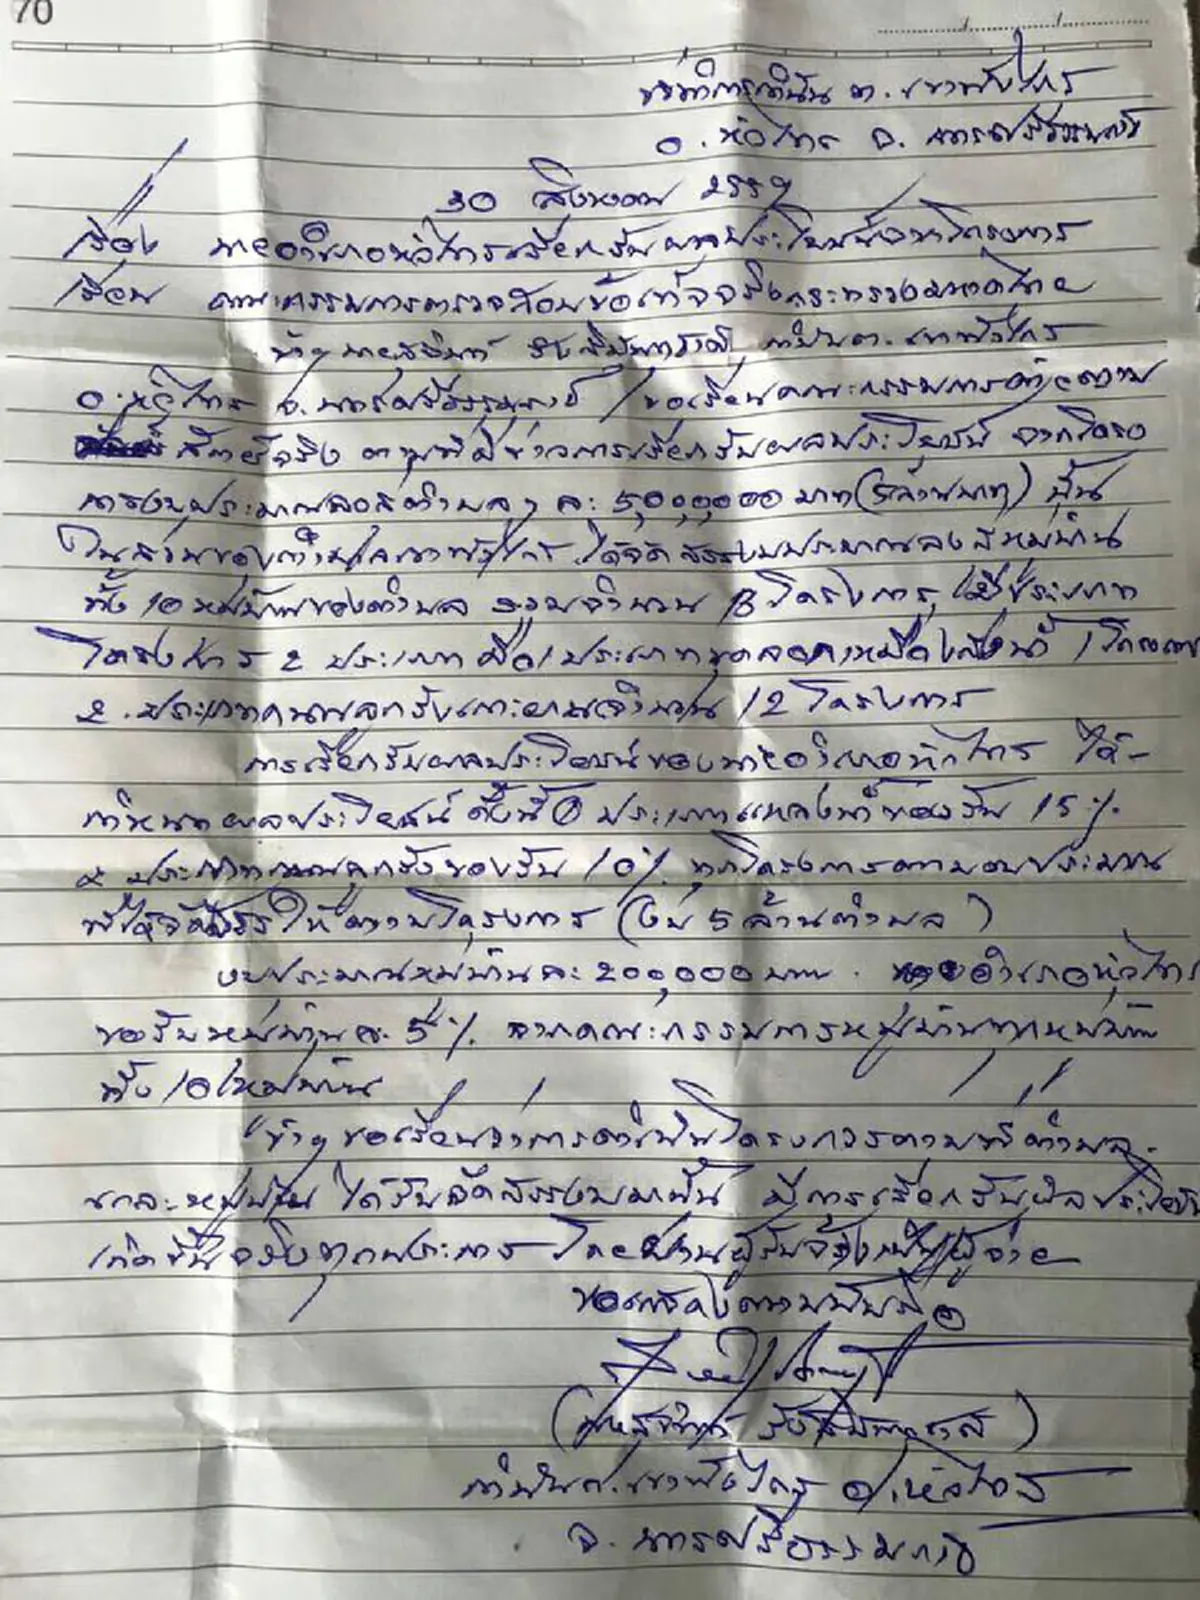 70
ที่ทำการกำนัน ต. เขาพังไกร
อ. หัวไทร จ. นครศรีธรรมราช
30 สิงหาคม 2559
เรื่อง นายอำเภอหัวไทรเรียกรับผลประโยชน์จากโครงการ
เรียน คณะกรรมการตรวจสอบข้อเท็จจริงกระทรวงมหาดไทย
ข้าฯ กำนัน ต. เขาพังไกร
อ. หัวไทร จ. นครศรีธรรมราช ขอเรียนคณะกรรมการด้วยความ
จริง ตามที่มีข่าวการเรียกรับผลประโยชน์ จากโครง
การงบประมาณลงสู่ตำบล ๆ ละ 5,000,000 บาท (5ล้านบาท) นั้น
ในส่วนของตำบลเขาพังไกร ได้จัดสรรงบประมาณลงสู่หมู่บ้าน
ทั้ง 10 หมู่บ้านของตำบล รวมจำนวน 13 โครงการ มีประเภท
โครงการ 2 ประเภท คือ 1 ประเภทขุดลอกเหมืองส่งน้ำ 1 โครงการ
2. ประเภทถนนลูกรังจำนวน 12 โครงการ
การเรียกรับผลประโยชน์ของนายอำเภอหัวไทร ได้-
กำหนดผลประโยชน์ ดังนี้ ① ประเภทแหล่งน้ำขอรับ 15 %
๒ ประเภทถนนลูกรังขอรับ 10 % ทุกโครงการตามงบประมาณ
ที่ได้จัดสรรให้ตามโครงการ (งบ 5 ล้านตำบล)
งบประมาณหมู่บ้านละ 200,000 บาท. นายอำเภอหัวไทร
ขอรับหมู่บ้านละ 5 % จากคณะกรรมการหมู่บ้านทุกหมู่บ้าน
ทั้ง 10 หมู่บ้าน
ข้าฯ ขอเรียนว่าการดำเนินโครงการตามที่ตำบล
และหมู่บ้าน ได้รับจัดสรรงบมานั้น มีการเรียกรับผลประโยชน์
เกิดขึ้นจริงทุกประการ โดยผ่านผู้รับจ้างเป็นผู้จ่าย
ขอแสดงความนับถือ
กำนัน ต. เขาพังไกร อ. หัวไทร
จ. นครศรีธรรมราช